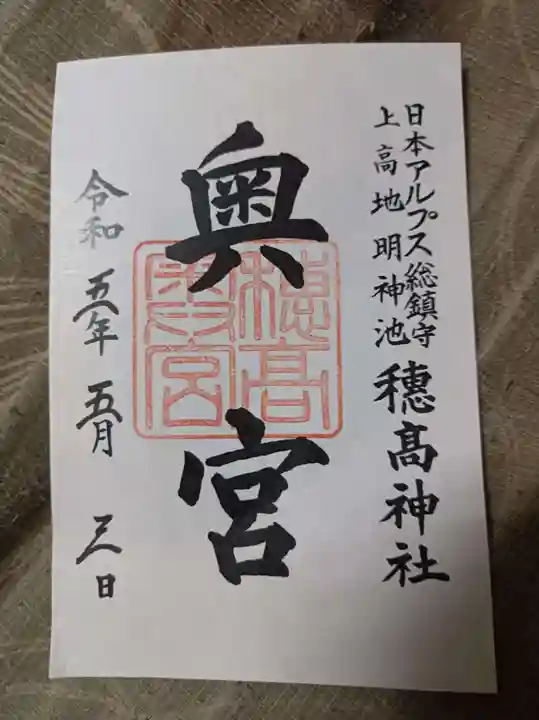 日本アルプス総鎮守
上高地明神池
穂髙神社
奥宮
穂高
奥宮
令和五年五月三日